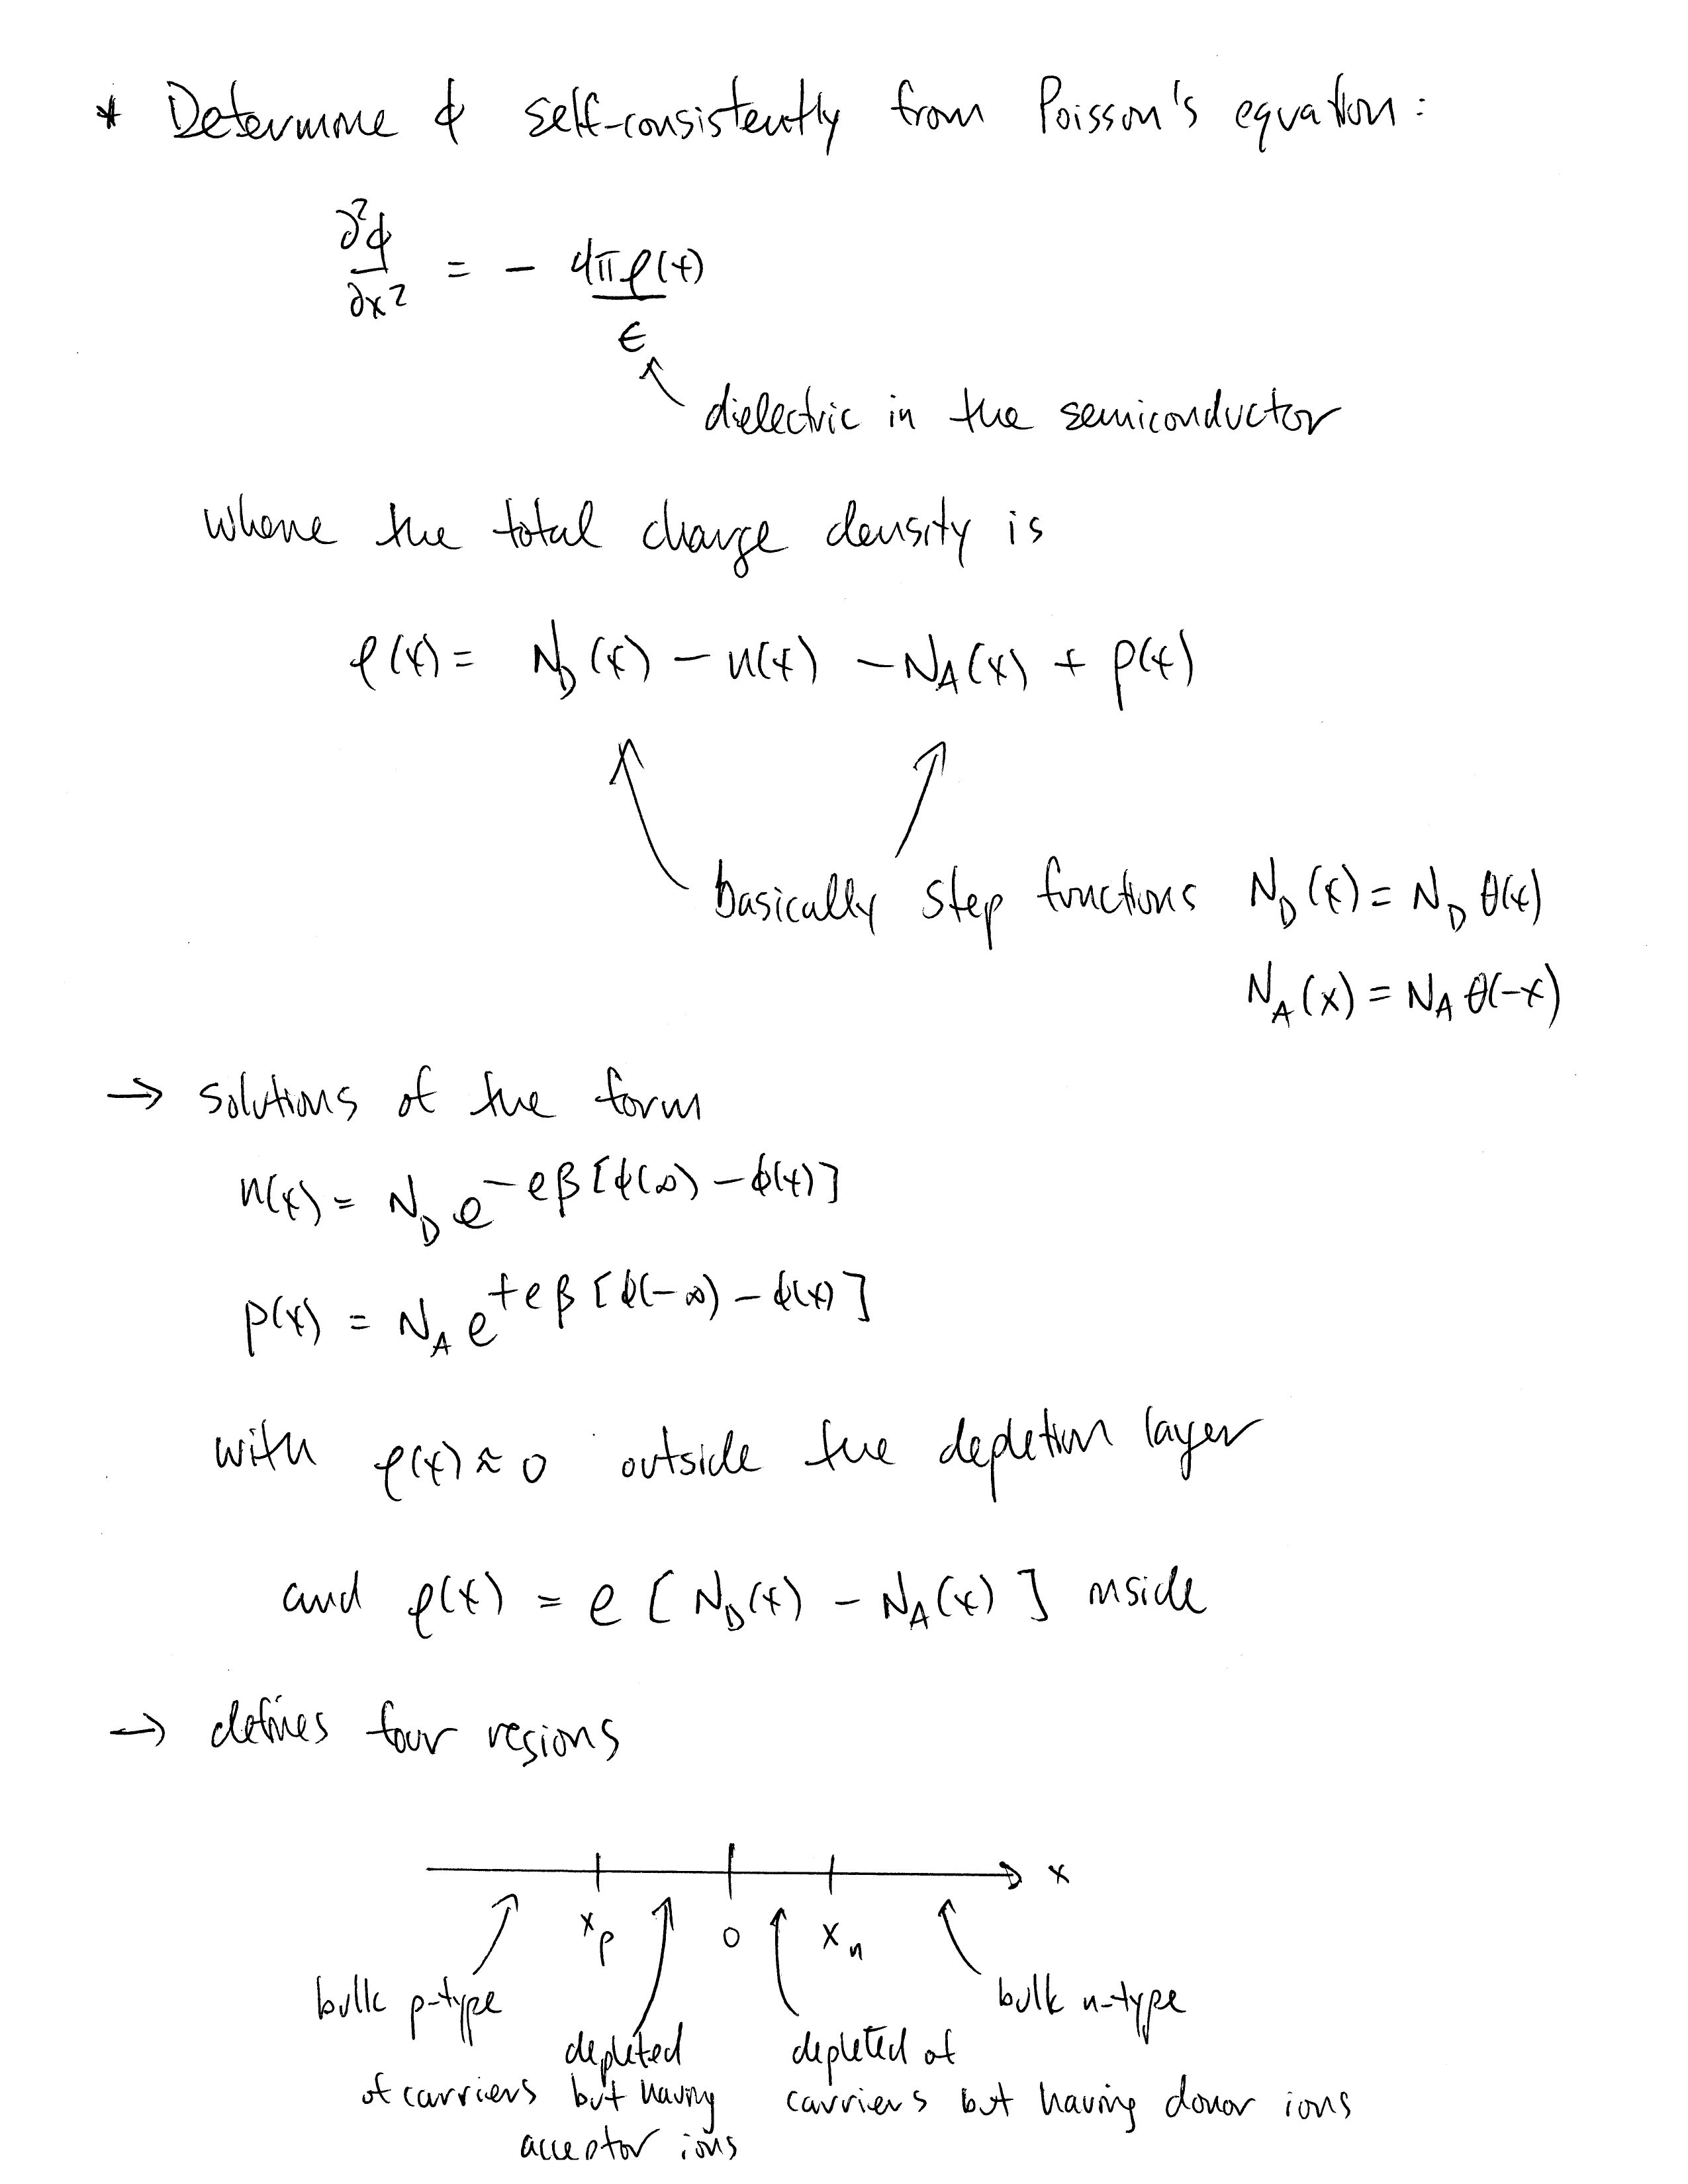 * Determine ϕ self-consistently from Poisson's equation:
∂²ϕ/∂x² = - 4πρ(x)/ϵ
dielectric in the semiconductor
where the total charge density is
ρ(x) = N_D(x) - n(x) - N_A(x) + p(x)
basically step functions N_D(x) = N_D θ(x)
N_A(x) = N_A θ(-x)
→ solutions of the form
n(x) = N_D e^{-eβ[ϕ(∞) - ϕ(x)]}
p(x) = N_A e^{+eβ[ϕ(-∞) - ϕ(x)]}
with ρ(x) ≈ 0 outside the depletion layer
and ρ(x) = e [N_D(x) - N_A(x)] inside
→ defines four regions
x
x_p 0 x_n
bulk p-type
depleted
of carriers but having
acceptor ions
depleted of
carriers but having donor ions
bulk n-type